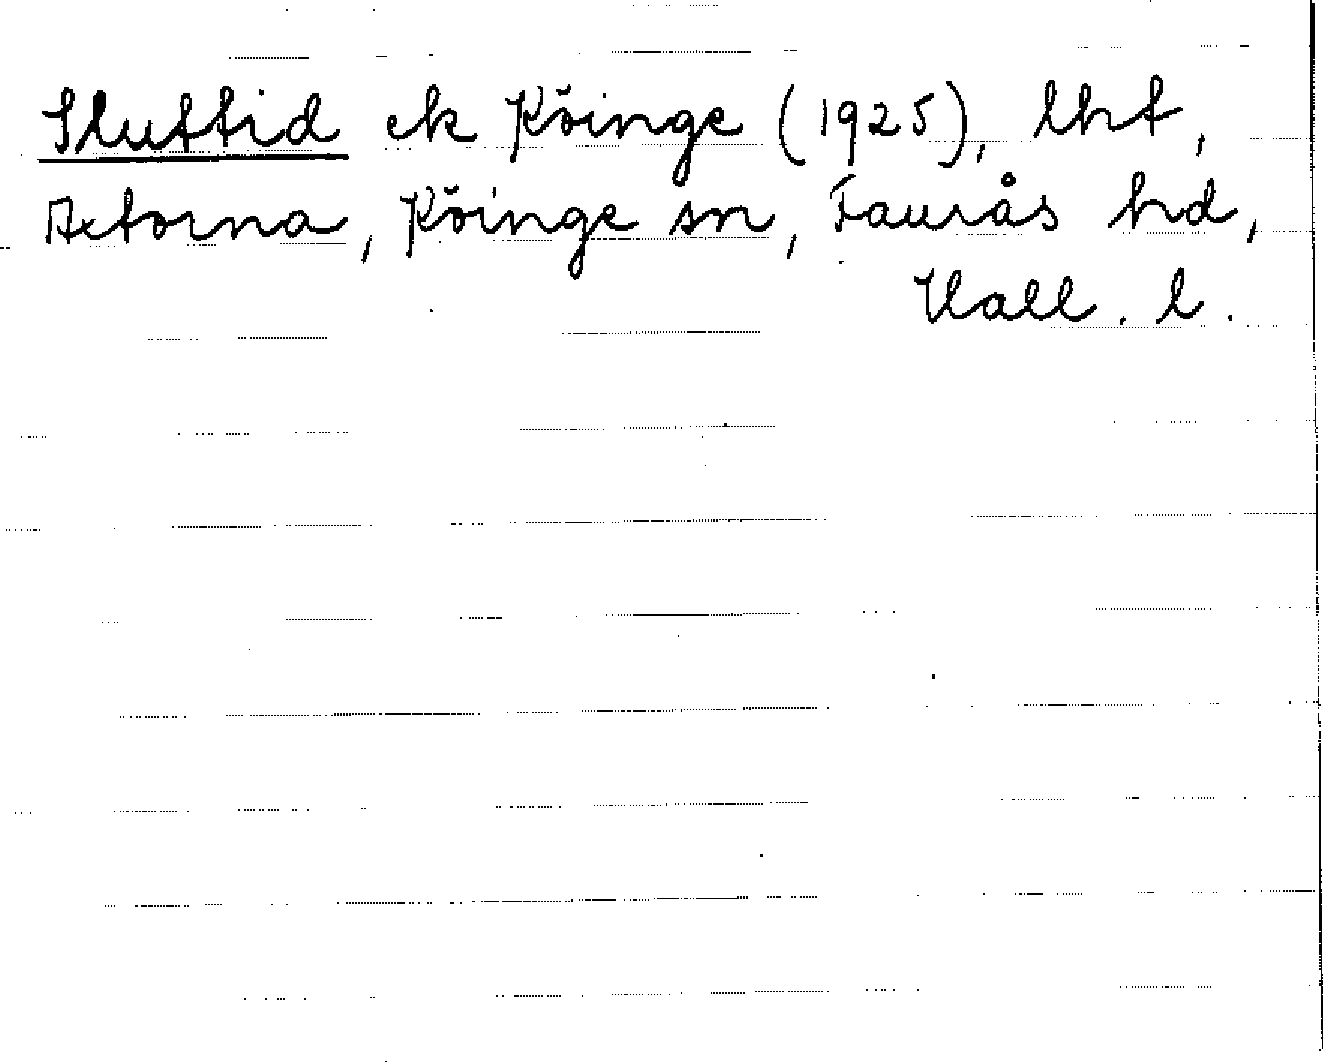 Sluttid ek Köinge (1925), lht,
Axtorna, Köinge sn, Faurås hd,
Hall. l.